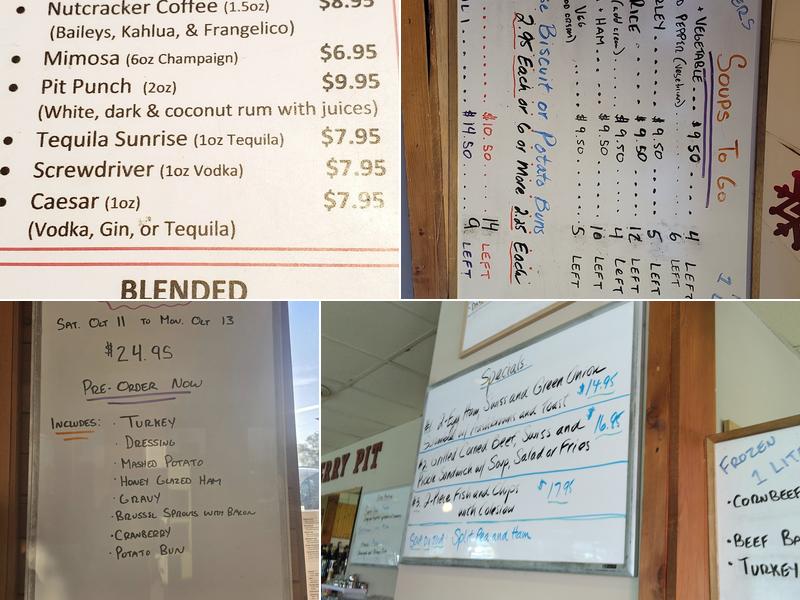 Nutcracker Coffee (1.5oz) $8.95
(Baileys, Kahlua, & Frangelico)
Mimosa (6oz Champaign) $6.95
Pit Punch (2oz) $9.95
(White, dark & coconut rum with juices)
Tequila Sunrise (1oz Tequila) $7.95
Screwdriver (1oz Vodka) $7.95
Caesar (1oz) $7.95
(Vodka, Gin, or Tequila)
BLENDED
Soups To Go
+ VEGETABLE... $9.50 4 LEFT
PEPPER (vegetarian) 6 LEFT
$9.50 5 LEFT
RICE $9.50 12 LEFT
$9.50 4 LEFT
HAM $9.50 10 LEFT
VEG $9.50 5 LEFT
Biscuit or Potato Buns
2.95 Each or 6 or More 2.25 Each
$10.50 14 LEFT
$14.50 9 LEFT
SAT. OCT 11 TO MON. OCT 13
$24.95
PRE-ORDER NOW
INCLUDES: · TURKEY
· DRESSING
· MASHED POTATO
· HONEY GLAZED HAM
· GRAVY
· BRUSSEL SPROUTS WITH BACON
· CRANBERRY
· POTATO BUN
Specials
#1. 2-Egg Ham, Swiss and Green Onion
w/ Hashbrowns and Toast $14.95
#2. Grilled Corned Beef, Swiss and
Pickle Sandwich w/ Soup, Salad or Fries $16.95
#3. 2-Piece Fish and Chips
with Coleslaw $17.95
Split Pea and Ham
ERRY PIT
FROZEN
1 LIT
· CORNBEEF
· BEEF BA
· TURKEY